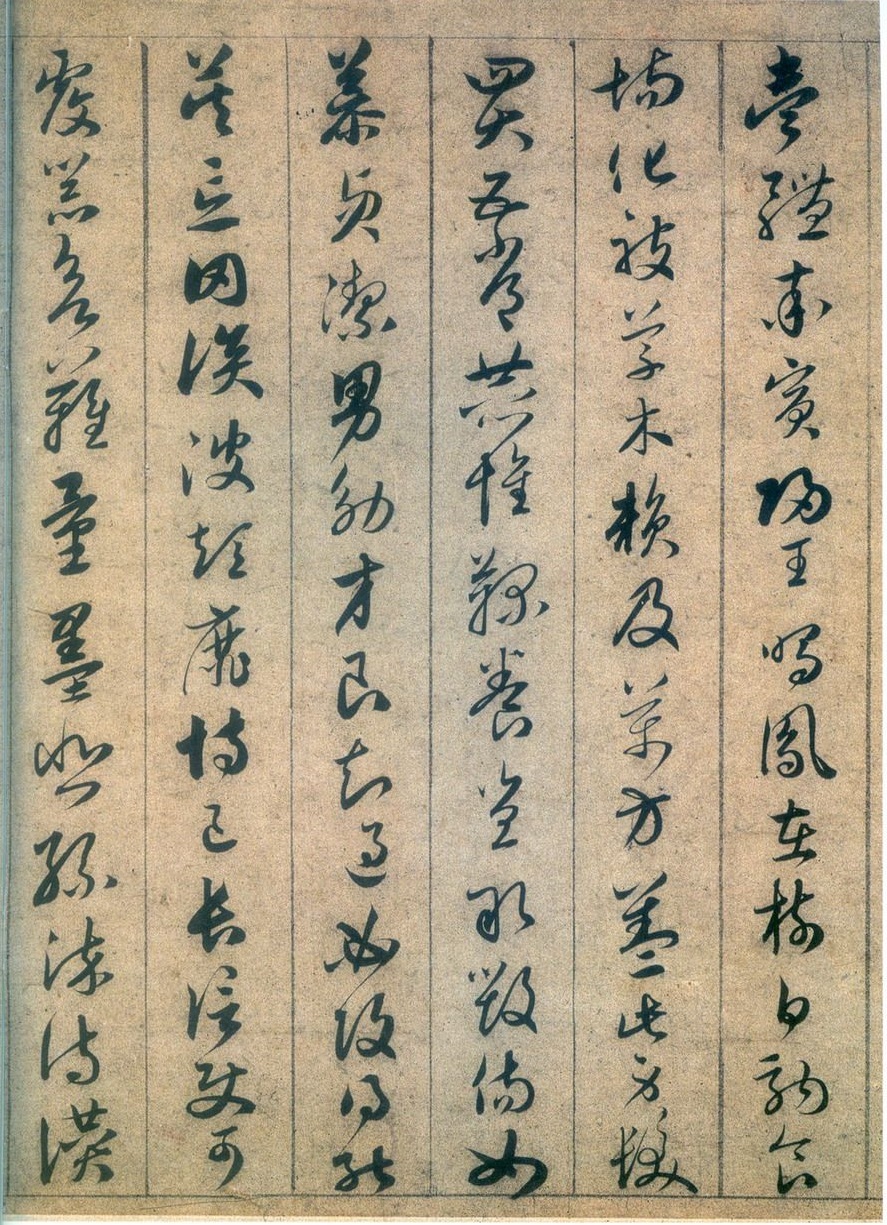 壹體率賓歸王鳴鳳在樹白駒食
場化被草木賴及萬方蓋此身髮
四大五常恭惟鞠養豈敢毀傷女
慕貞潔男効才良知過必改得能
莫忘罔談彼短靡恃己長信使可
覆器欲難量墨悲絲染詩讚